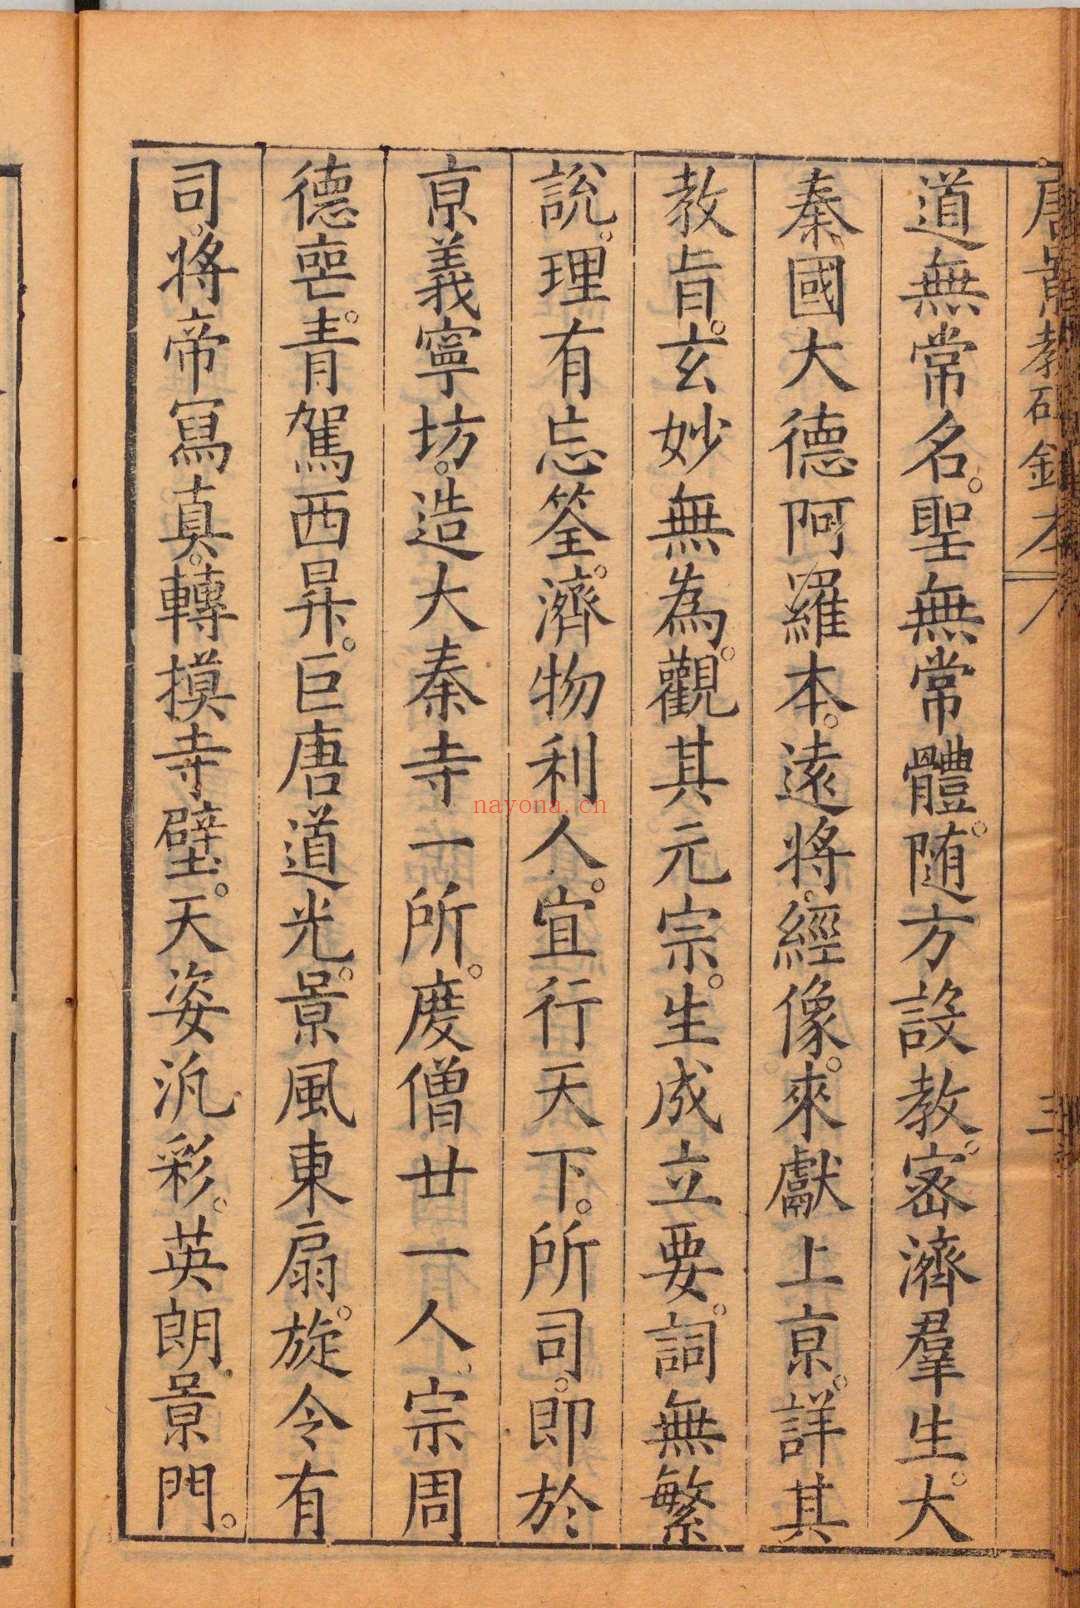 唐景教碑錄本
三
道無常名。聖無常體。随方設教。宻濟羣生。大
秦。國大德阿羅本。遠將。經像。來獻上亰。詳其
教旨。玄妙無為。觀其元宗。生成立要。詞無繁
說。理有忘筌。濟物利人。宜行天下。所司。即於
亰義寧坊。造大秦寺一所。度僧廿一人。宗周
德䘮。青駕西昇。巨唐道光。景風東扇。旋令有
司。將帝寫真。轉摸寺壁。天姿汎彩。英朗景門。
nayona.cn